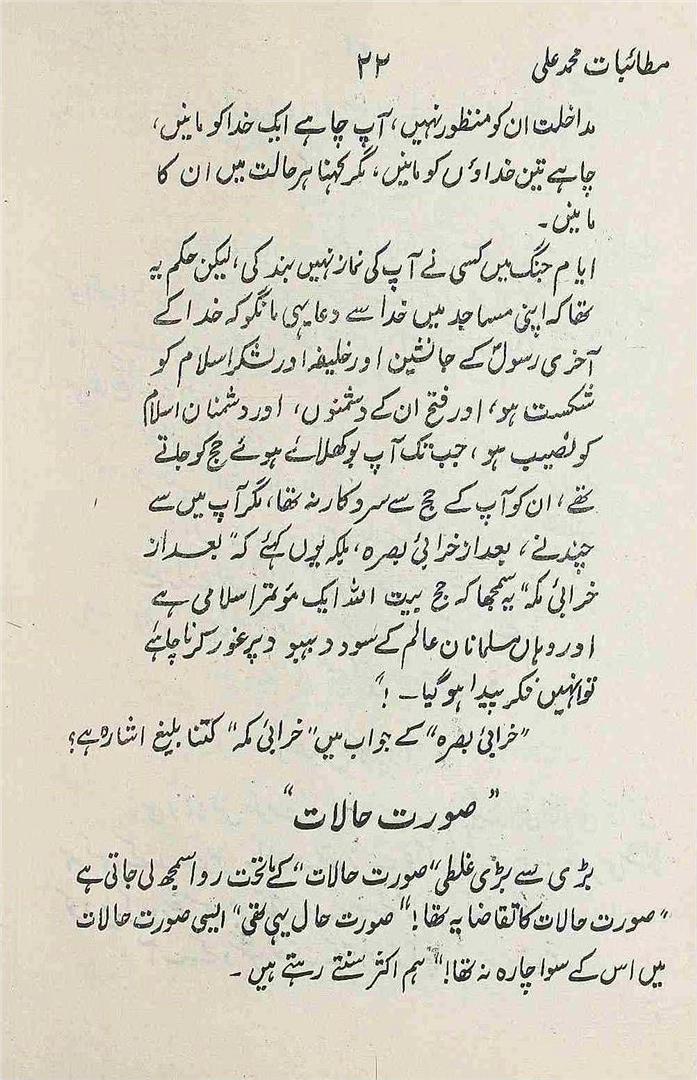 مطائبات محمد علی ۲۲
مداخلت ان کو منظور نہیں، آپ چاہے ایک خدا کو مانیں،
چاہے تین خداؤں کو مانیں، مگر کہنا ہر حالت میں ان کا
مانیں۔
ایام جنگ میں کسی نے آپ کی نماز نہیں بند کی، لیکن حکم یہ
تھا کہ اپنی مساجد میں خدا سے دعا یہی مانگو کہ خدا کے
آخری رسولؐ کے جانشین اور خلیفہ اور لشکر اسلام کو
شکست ہو، اور فتح ان کے دشمنوں، اور دشمنان اسلام
کو نصیب ہو، جب تک آپ بوکھلائے ہوئے حج کو جاتے
تھے، ان کو آپ کے حج سے سروکار نہ تھا، مگر آپ میں سے
چند نے، بعد از خرابئ بصرہ، بلکہ یوں کہئے کہ "بعد از
خرابئ مکہ" یہ سمجھا کہ حج بیت اللہ ایک مؤتمر اسلامی ہے
اور وہاں مسلمانان عالم کے سود و بہبود پر غور کرنا چاہئے
تو انہیں فکر پیدا ہو گیا۔ !"
"خرابئ بصرہ" کے جواب میں "خرابئ مکہ" کتنا بلیغ اشارہ ہے؟
"صورت حالات"
بڑی سے بڑی غلطی "صورت حالات" کے ماتحت روا سمجھ لی جاتی ہے
"صورت حالات کا تقاضا یہ تھا!" "صورت حال یہی تھی" ایسی صورت حالات
میں اس کے سوا چارہ نہ تھا!" ہم اکثر سنتے رہتے ہیں۔